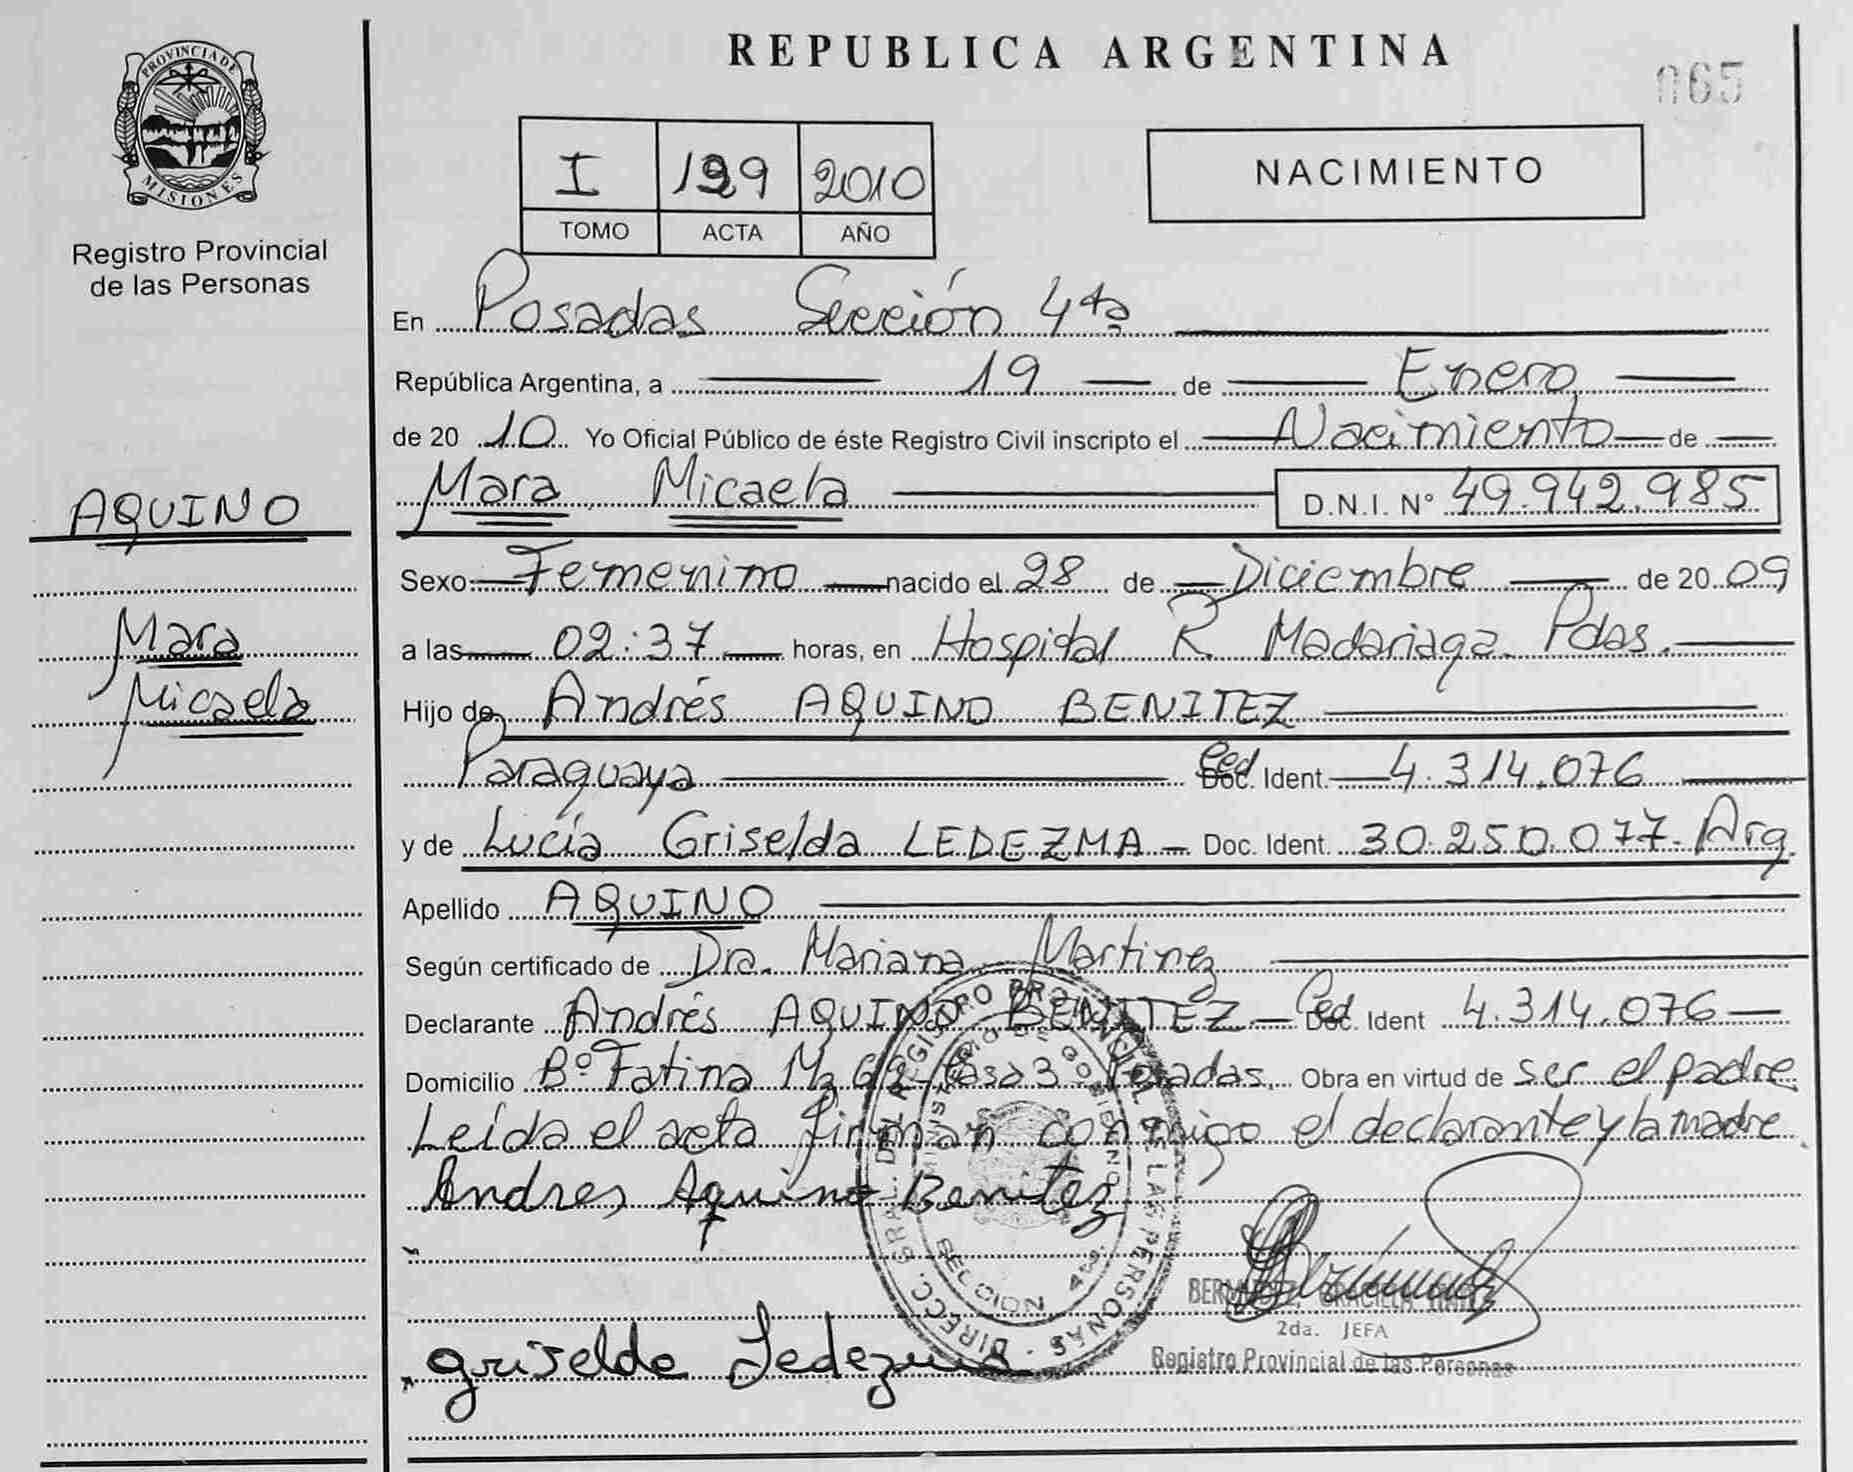 PROVINCIA DE
MISIONES
Registro Provincial
de las Personas
REPUBLICA ARGENTINA
065
I 2010
TOMO ACTA AÑO
NACIMIENTO
En Posadas Sección 4ta
República Argentina, a 19 de Enero
de 2010 Yo Oficial Público de éste Registro Civil inscripto el Nacimiento de
Mara Micaela D.N.I. Nº 49.942.985
AQUINO
Mara
Micaela
Sexo: Femenino nacido el 28 de Diciembre de 2009
a las 02:37 horas, en Hospital R. Madariaga. Pdas.
Hijo de Andrés AQUINO BENITEZ
Paraguaya Ced. Ident. 4.314.076
y de Lucía Griselda LEDEZMA - Doc. Ident. 30.250.077. Arg.
Apellido AQUINO
Según certificado de Dra. Mariana Martinez
Declarante Andrés AQUINO BENITEZ - Ced. Ident 4.314.076
Domicilio Bº Fatina Mz Casa 3 Posadas. Obra en virtud de ser el padre.
Leída el acta firman conmigo el declarante y la madre.
Andres Aquino Benitez
DIRECC. GRAL. DEL REGISTRO PROVINCIAL DE LAS PERSONAS
MINISTERIO DE GOBIERNO
SECCION 4ta.
GRACIELA
2da. JEFA
Registro Provincial de las Personas
Griselda Ledezma